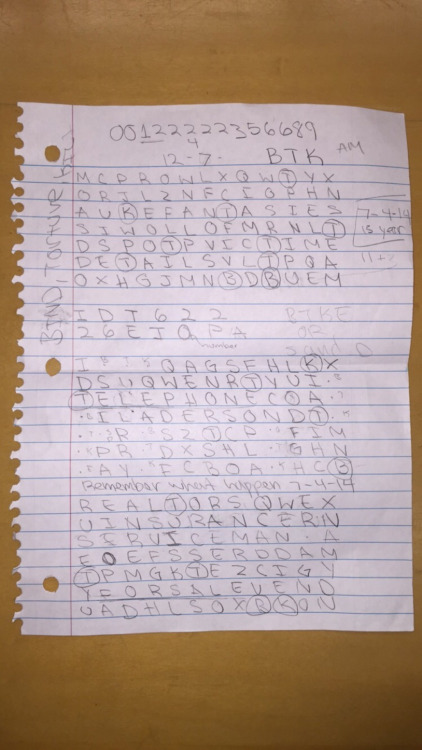 001222222356689
4
12-7.
BTK
AM
BIND, Torture
MCPROWLXQWTVX
ORJLZNFCIOPHN
AUKEFANTASIES
SIWOLLOFMRNLT
DSPOTPVICTIME
DETAILSVLTPQA
OXHGJMNBDBUEM
7-4-14
is year
11+2
IDT622
26EJQPA
number
BTKE
OR
OAGSEHLKX
DSUQWENRTYUI
TELEPHONECOA
ILADERSONDT
R SZTCP FIM
PR DXSHL GHN
AY FCBOA HCB
Remember what happen 7-4-14
REALTORSQWEX
UINSURANCERN
SERVICEMAN A
EOEFSSERUDAM
TPMGKTEZCIGY
YFORSALEVEND
UADHLSOXRKON